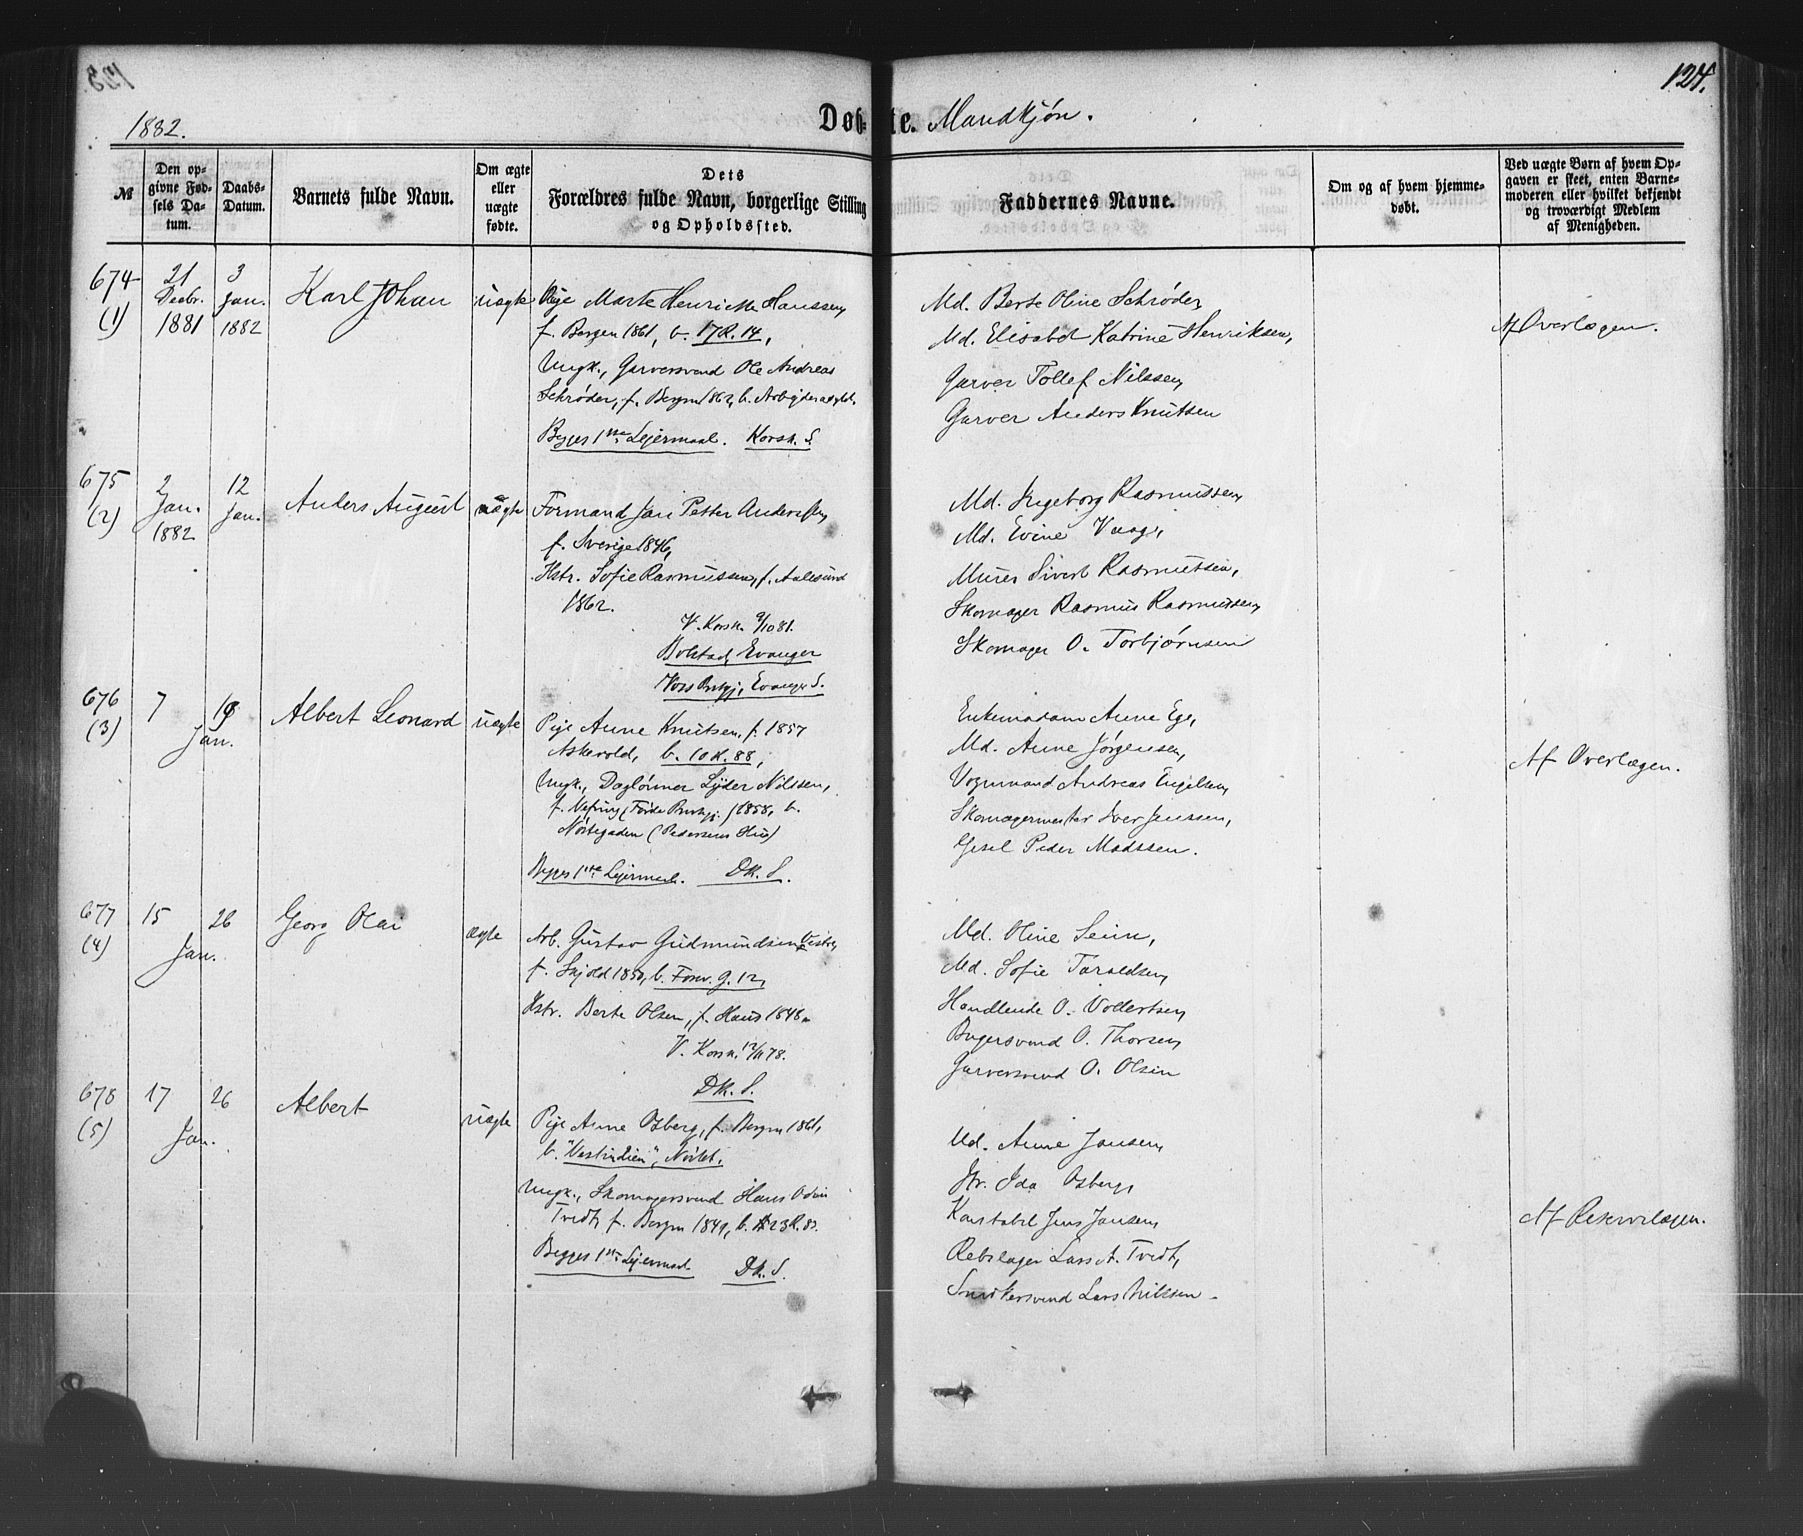 124.
1882.
Døbte. Mandkjøn.
№
Den opgivne Fødsels Datum.
Daabs-Datum.
Barnets fulde Navn.
Om ægte eller uægte fødte.
Dets Forældres fulde Navn, borgerlige Stilling og Opholdssted.
Faddernes Navne.
Om og af hvem hjemmedøbt.
Ved uægte Børn af hvem Opgaven er skeet, enten Barnemoderen eller hvilket bekjendt og troværdigt Medlem af Menigheden.
674
(1)
21
Decbr.
1881
3
Jan.
1882
Karl Johan
uægte
Pige Marte Henriette Hanssen,
f. Bergen 1861, b. 17 R. 14,
Ungk., Garversvend Ole Andreas
Schrøder, f. Bergen 1862, b.
Begges 1ste Lejermaal. Korsk. S.
Md. Berte Oline Schrøder,
Md. Elisabet Katrine Henriksen,
Garver Tollef Nilssen,
Garver Anders Knutsen
Af Overlægen.
675
(2)
2
Jan.
1882
12
Jan.
Anders August
uægte
Formand Jan Petter Andersen,
f. Sverige 1846,
Hstr. Sofie Rasmussen, f. Aalesund
1862.
V. Korsk. 9/10 81.
Bolstad, Evanger
Voss Prstgj., Evanger S.
Md. Ingeborg Rasmussen,
Md. Evine Vaage,
Murer Sivert Rasmussen,
Skomager Rasmus Rasmussen,
Skomager O. Torbjørnsen
676
(3)
7
19
Jan.
Albert Leonard
uægte
Pige Anne Knutsen, f. 1857
Askevold, b. 10 R. 88,
Ungk., Dagløнner Lyder Nilssen,
f. (Førde Prstgj.) 1858, b.
Nøstegaden (Pedersens Hus)
Begges 1ste Lejermaal. Dk. S.
Enkemadam Anne Ege,
Md. Anne Jørgensen,
Vognmand Andreas Engelsen,
Skomagermester Iver Janssen,
Gesel Peder Madssen.
Af Overlægen.
677
(4)
15
26
Jan.
Georg Olai
ægte
Arb. Gustav Gudmundsen
f. Skjold 1850, b. Forv. G. 12,
Hstr. Berte Olsen, f. Haus 1848.
V. Korsk. 12/11 78.
Dk. S.
Md. Oline Seim,
Md. Sofie Taraldsen,
Handlende O. Vollertsen,
Bagersvend O. Thorsen,
Garversvend O. Olsen
678
(5)
17
26
Jan.
Albert
uægte
Pige Anne Osberg, f. Bergen 1861,
b. "Vestindien", Nøstet.
Ungk., Skomagersvend Hans Odin
Tvedt, f. Bergen 1849, b. 23 R. 83.
Begges 1ste Lejermaal. Dk. S.
Md. Anne Jansen,
Jfr. Ida Osberg,
Konstabel Jens Jansen,
Rebslager Lars A. Tvedt,
Snedkersvend Lars Nilssen.
Af Reservelægen.